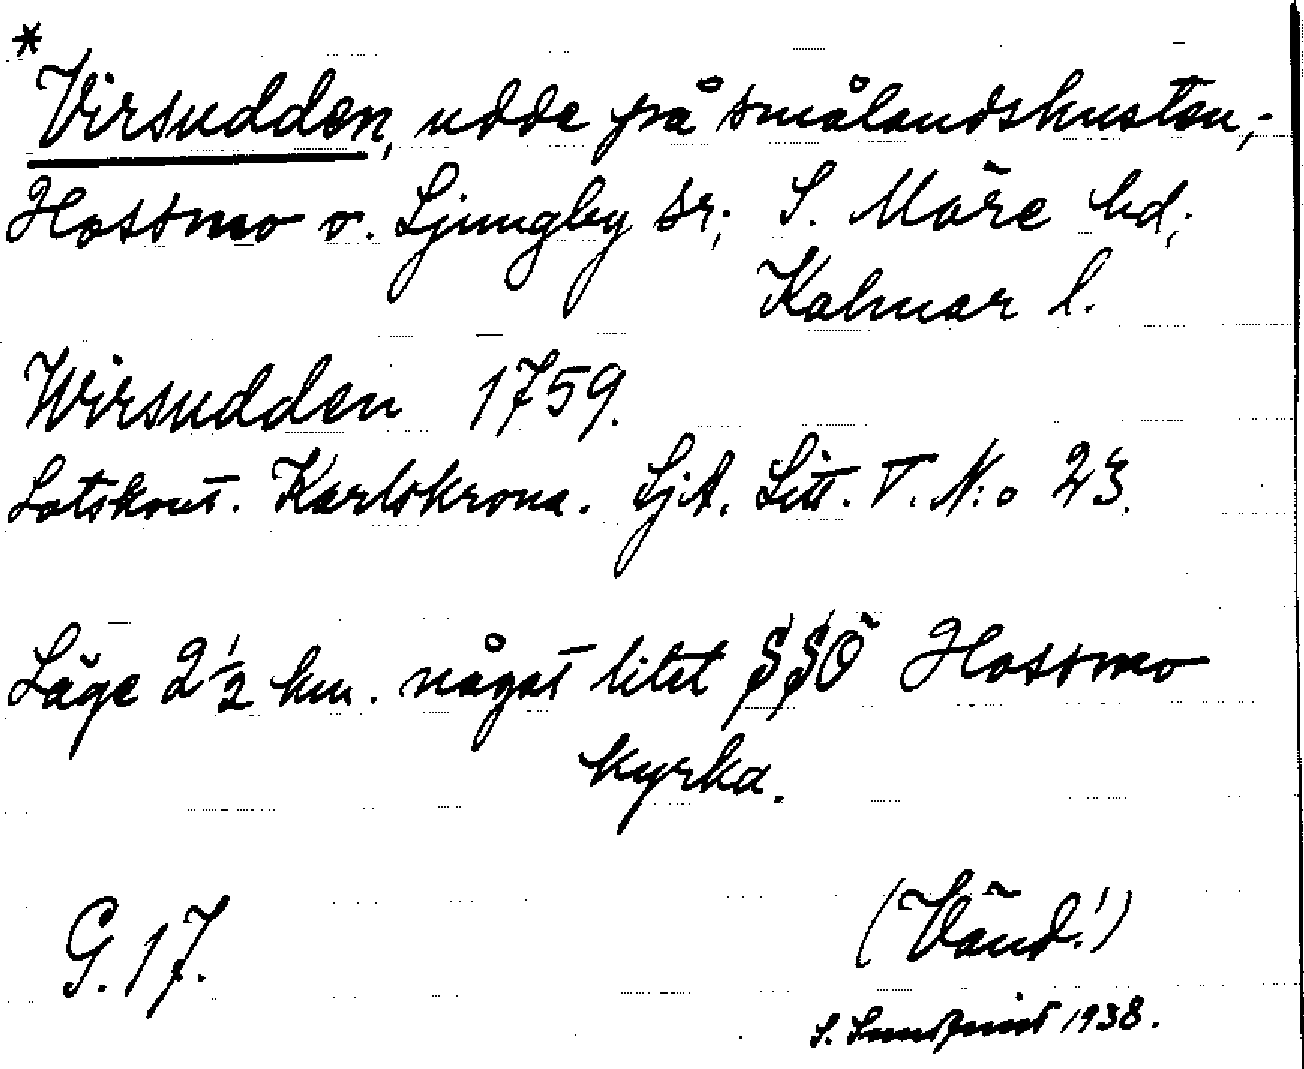 *
Virsudden, udde på smålandskusten,-
Hossmo o. Ljungby sr; S. Möre hd;
Kalmar l.
Wirsudden 1759.
Lotskont. Karlskrona. SjA. Litt. T. N:o 23.
Läge 2 1/2 km. något litet SSÖ Hossmo
kyrka.
G. 17.
(Vänd!)
S. Sundquist 1938.